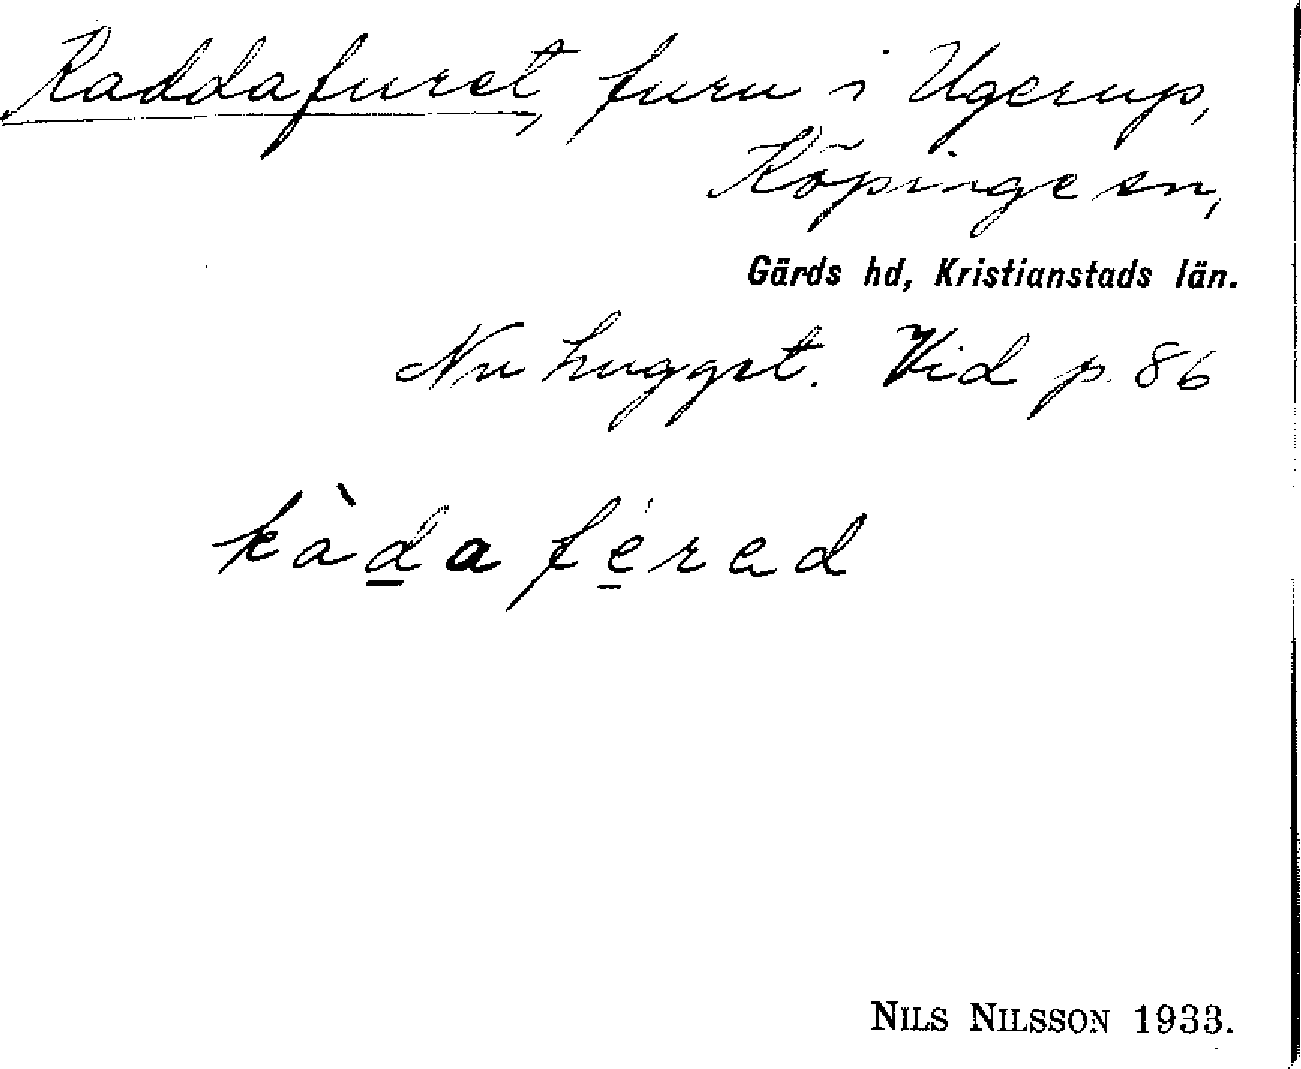 Kaddafuret, furu i Ugerup,
Köpinge sn,
Gärds hd, Kristianstads län.
Nu hugget. Vid p. 86
kàdaférad
NILS NILSSON 1933.